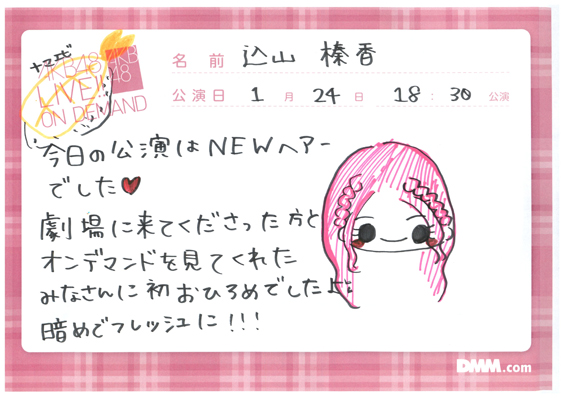 ヤマ式
AKB48
LIVE!!
ON DEMAND
AKB
48
名前 込山 榛香
公演日 1月 24日 18:30 公演
今日の公演はNEWヘアー
でした♥
劇場に来てくださった方と
オンデマンドを見てくれた
みなさんに初おひろめでした
暗めでフレッシュに!!!
DMM.com